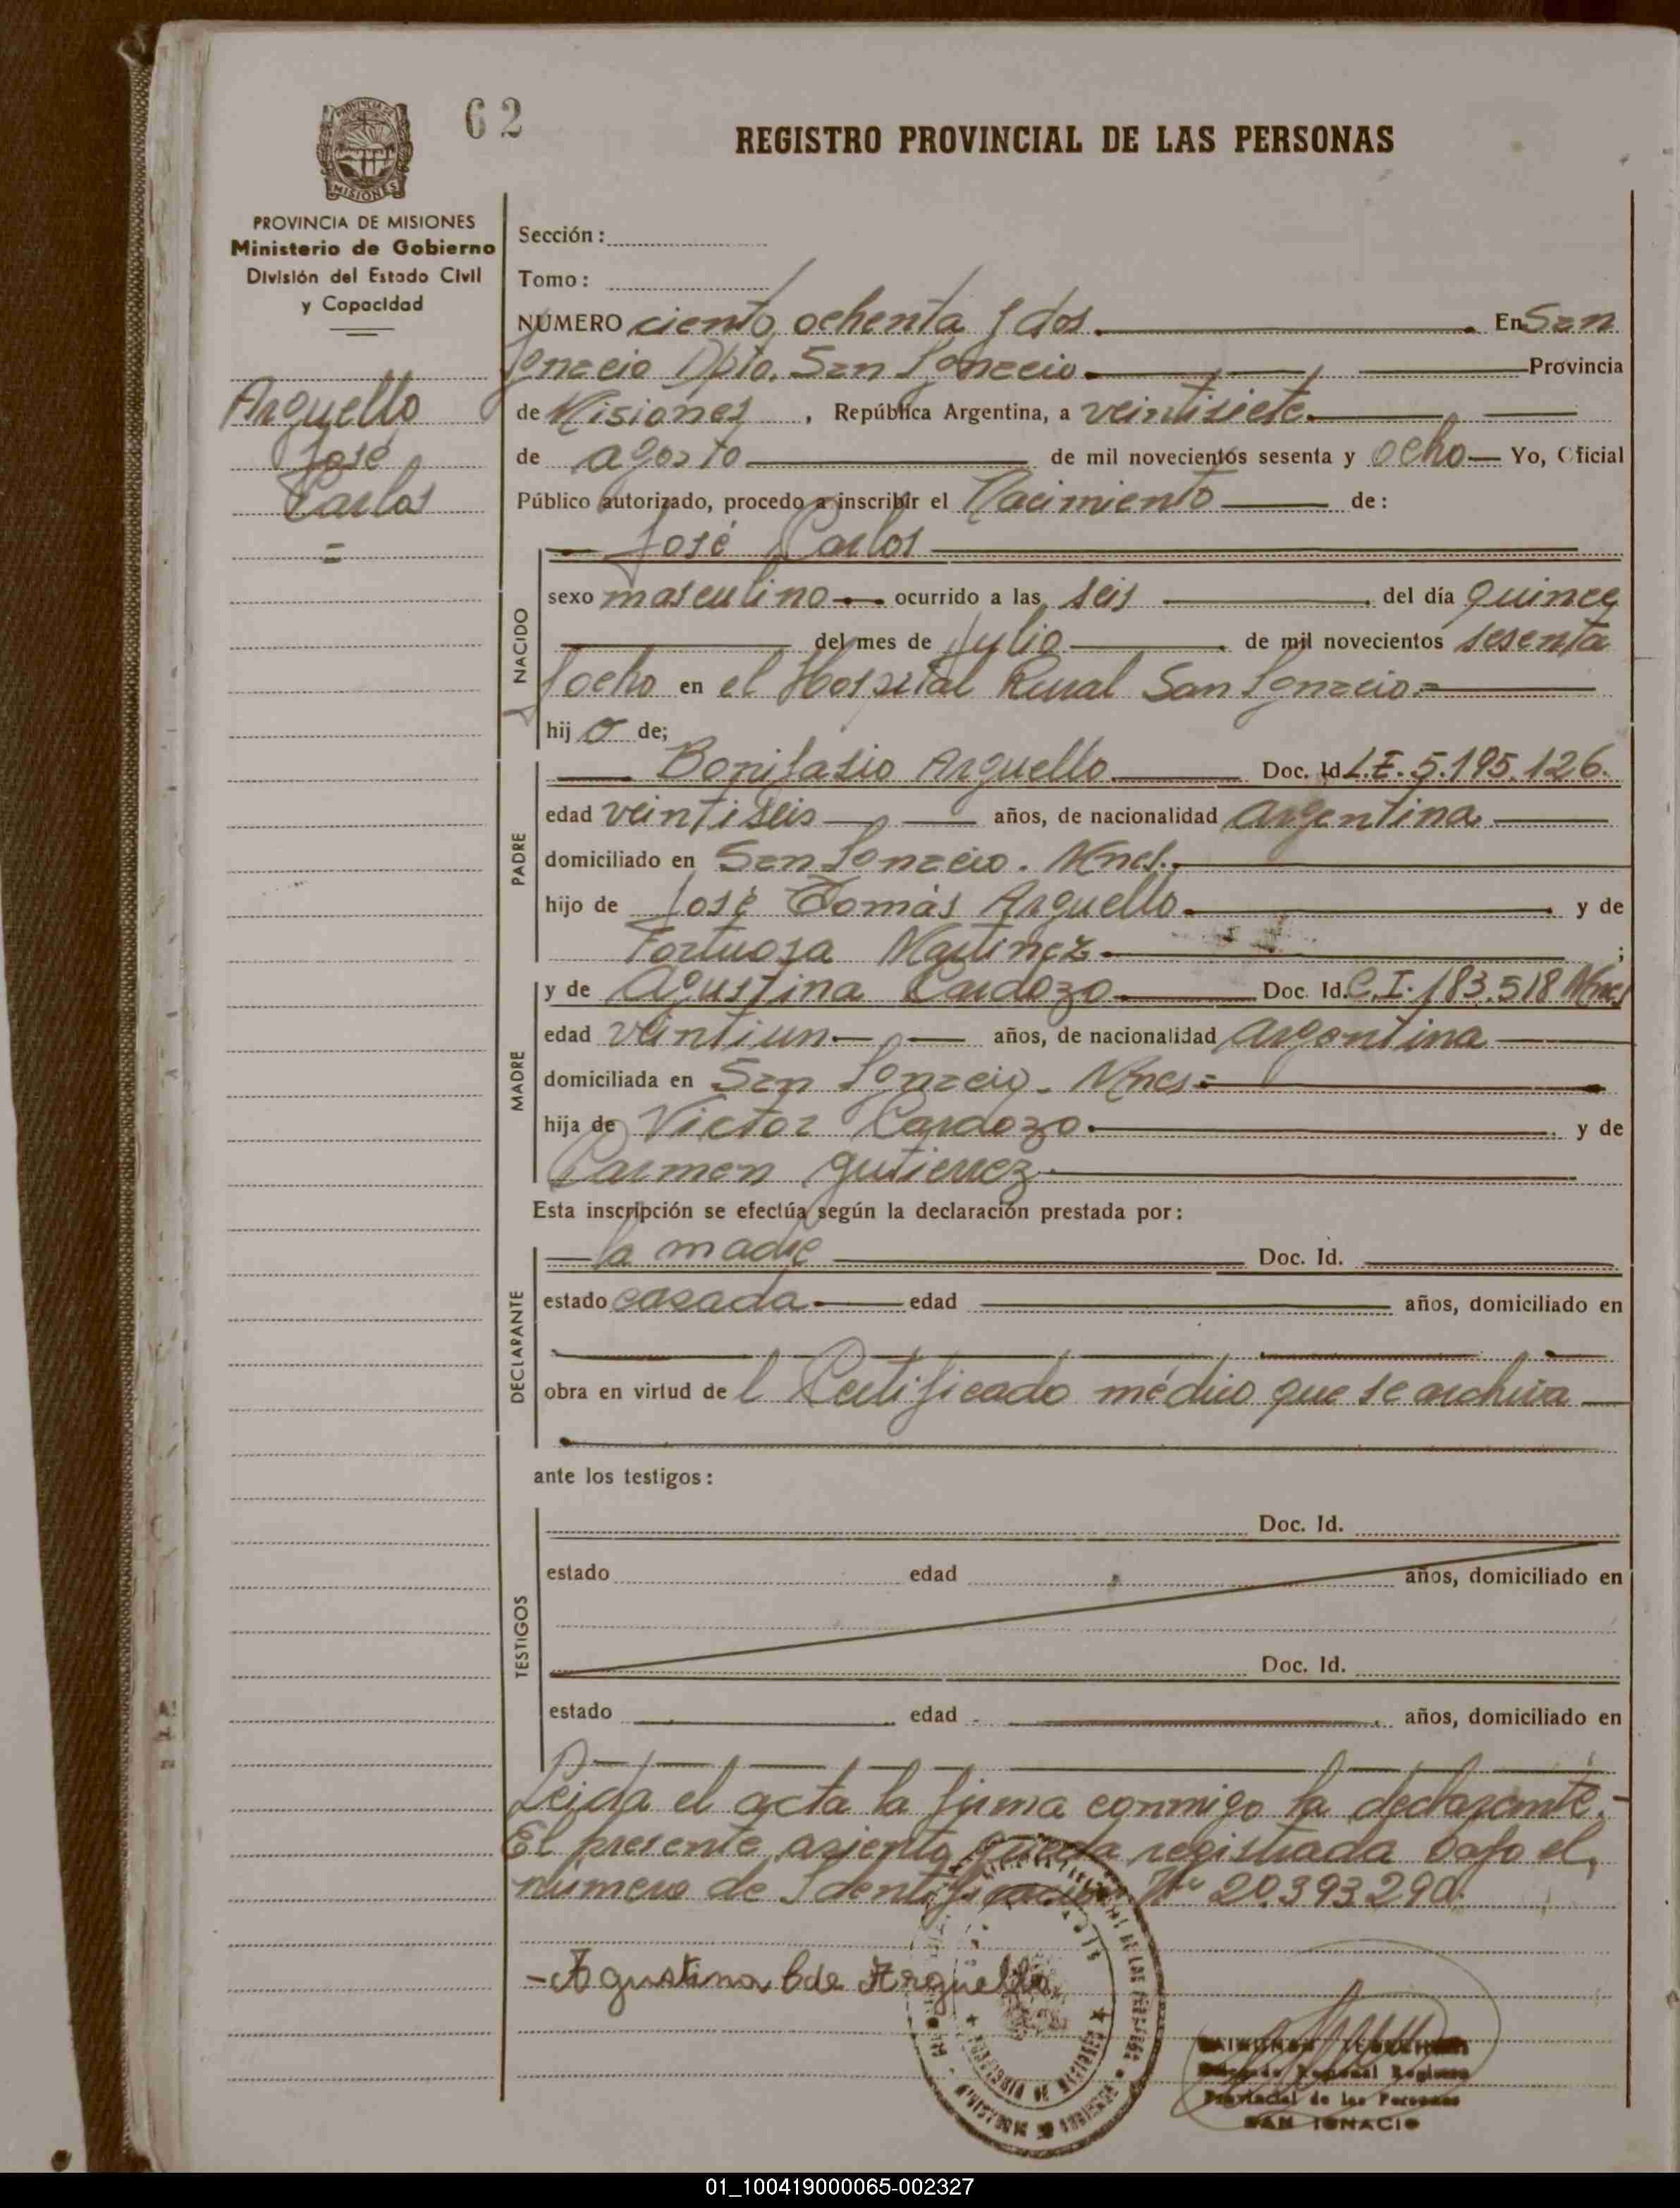 62
REGISTRO PROVINCIAL DE LAS PERSONAS
MISIONES
PROVINCIA DE MISIONES
Ministerio de Gobierno
División del Estado Civil
y Capacidad
Arguello
José
Carlos
=
Sección:
Tomo:
NUMERO ciento ochenta y dos. En San
Ignacio Dpto. San Ignacio Provincia
de Misiones, República Argentina, a veintisiete
de agosto de mil novecientos sesenta y ocho Yo, Oficial
Público autorizado, procedo a inscribir el Nacimiento de:
José Carlos
NACIDO
sexo masculino ocurrido a las seis del día quince
del mes de Julio de mil novecientos sesenta
y ocho en el Hospital Rural San Ignacio
hij o de;
PADRE
Bonifasio Arguello Doc. Id L.E. 5.195.126.
edad veintiseis años, de nacionalidad argentina
domiciliado en San Ignacio. Mnes.
hijo de José Tomás Arguello y de
Fortuosa Martinez ;
MADRE
y de Agustina Cardozo Doc. Id. C.I. 183.518 Mnes
edad veintiun años, de nacionalidad argentina
domiciliada en San Ignacio. Mnes
hija de Victor Cardozo y de
Carmen Gutierrez
Esta inscripción se efectúa según la declaración prestada por:
DECLARANTE
la madre Doc. Id.
estado casada edad años, domiciliado en
obra en virtud de l Certificado médico que se archiva
ante los testigos:
TESTIGOS
Doc. Id.
estado edad años, domiciliado en
Doc. Id.
estado edad años, domiciliado en
Leida el acta la firma conmigo la declarante.-
El presente asiento queda registrada bajo el
número de Identificación Nº 20.393.290.
-Agustina C de Arguello
Delegado Regional Registro
Provincial de las Personas
SAN IGNACIO
01_100419000065-002327